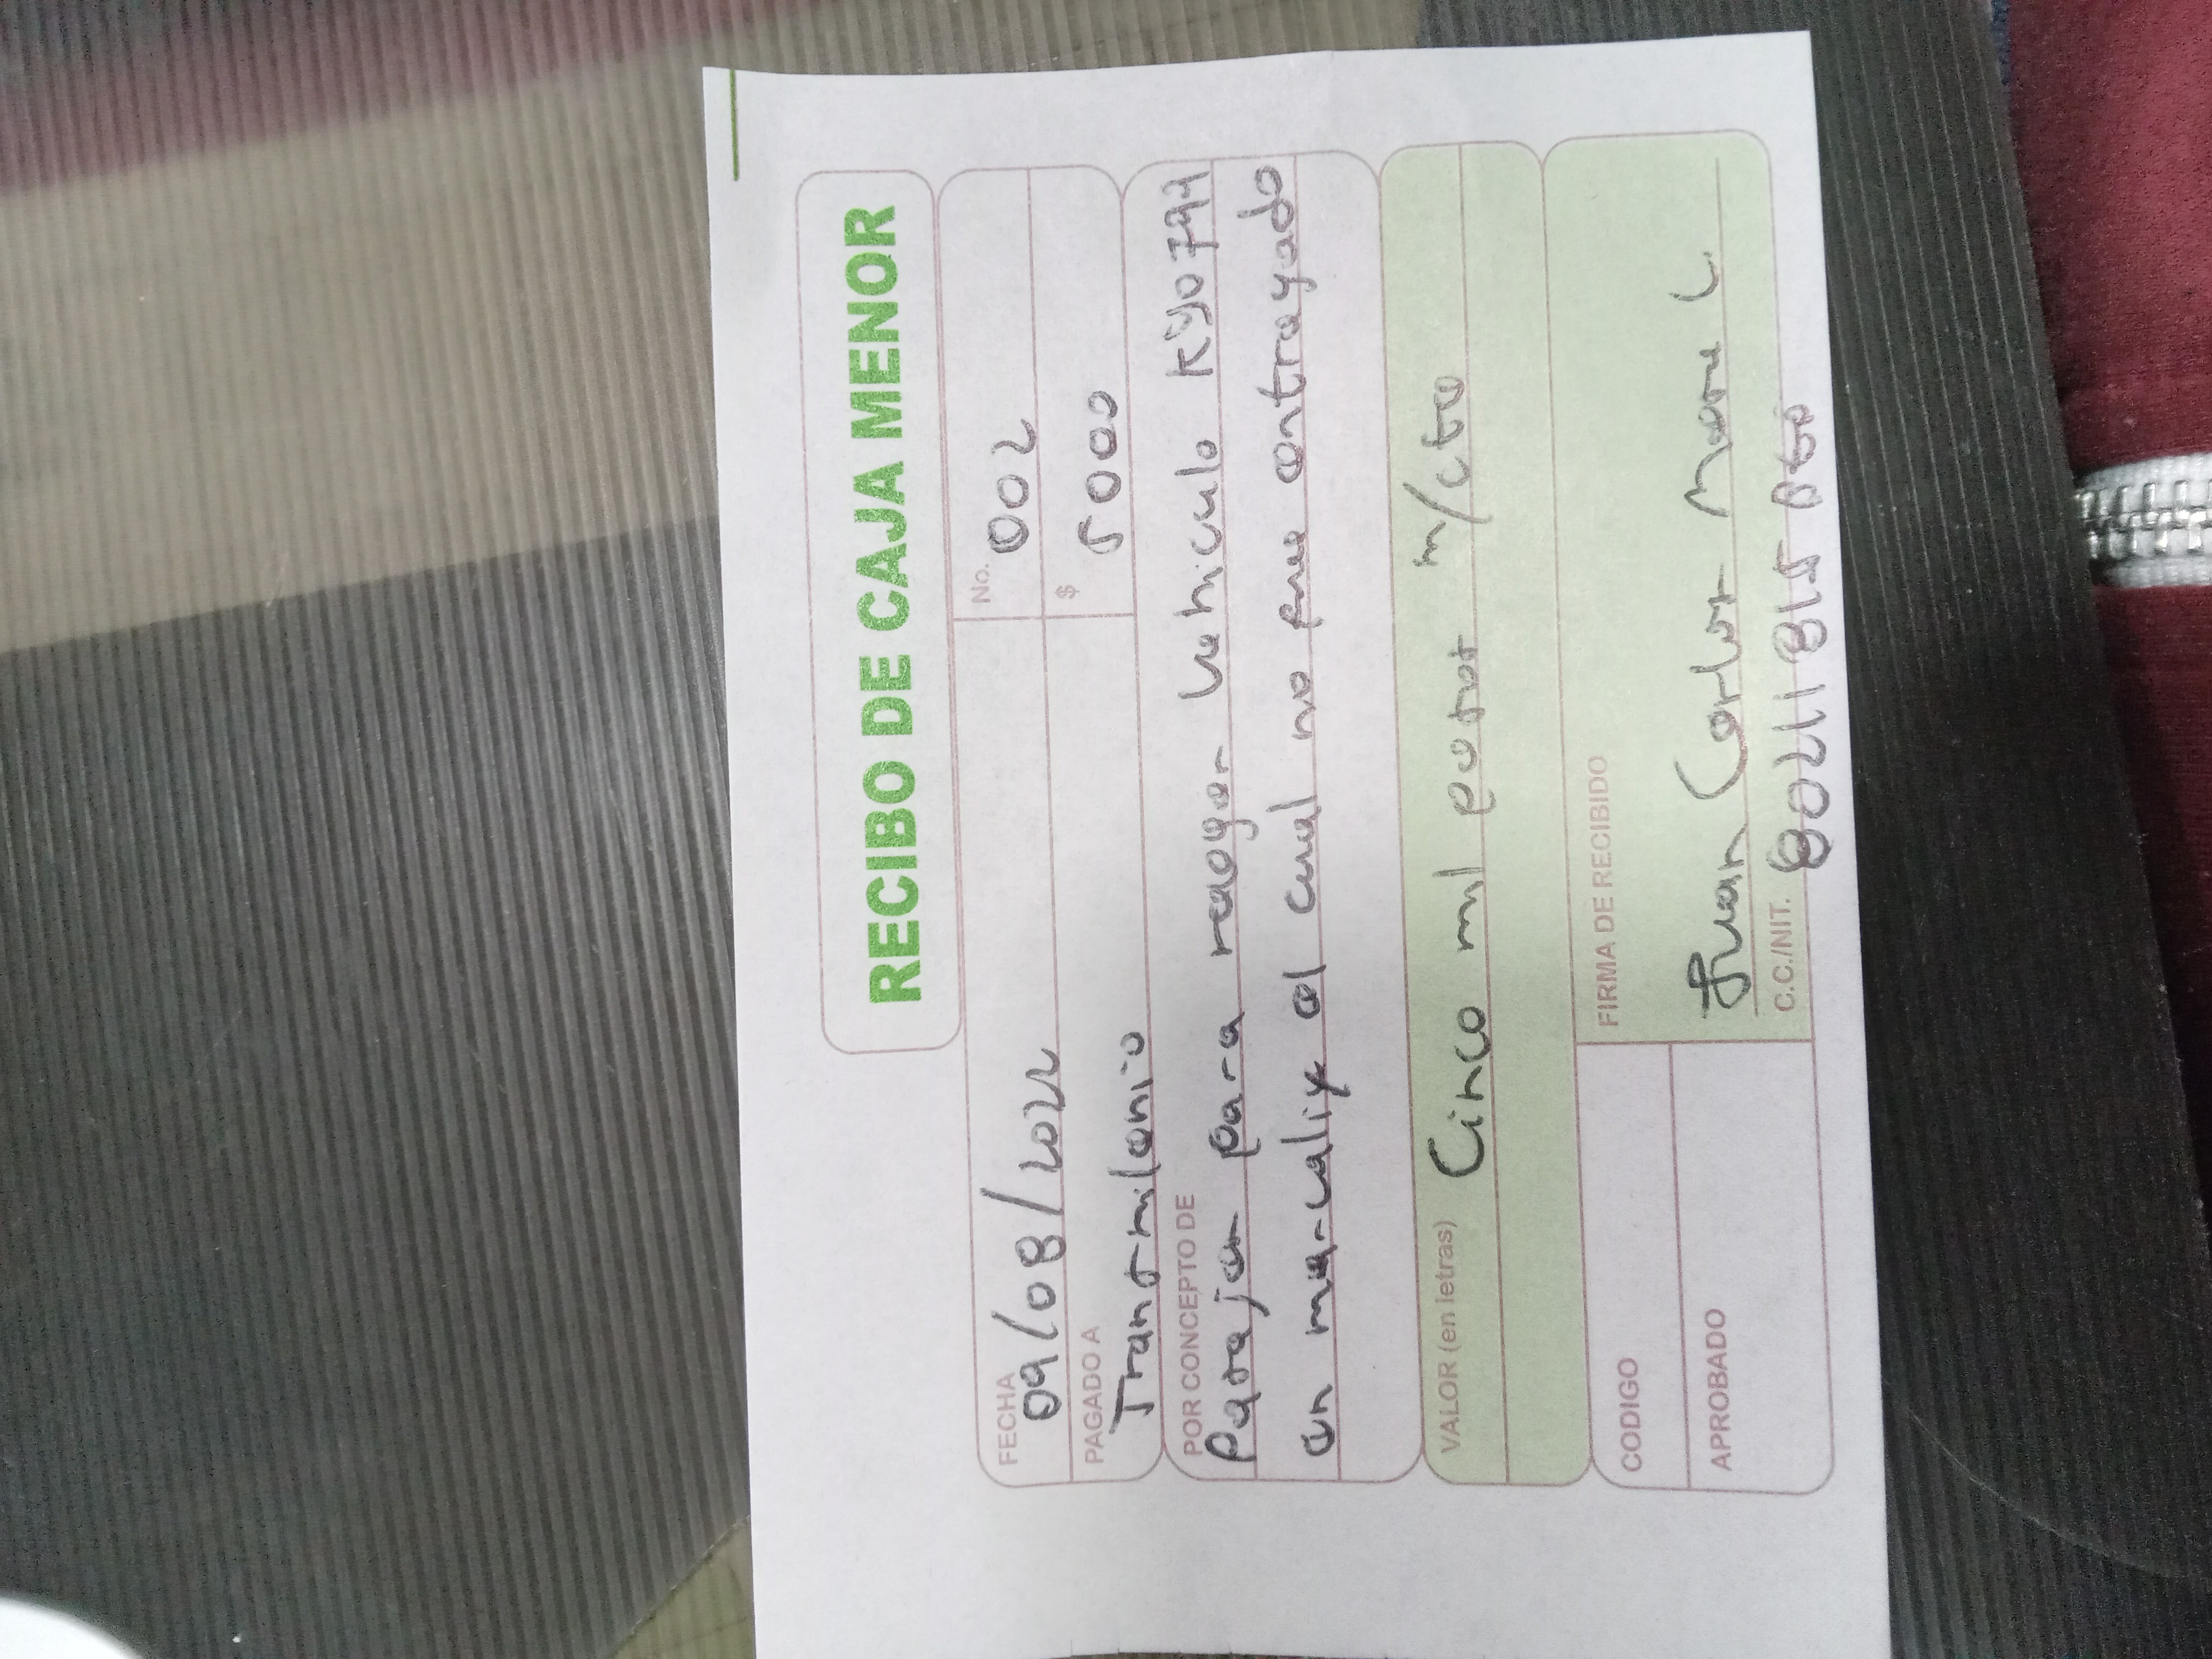 RECIBO DE CAJA MENOR
FECHA 09/08/2022 No. 002
PAGADO A Transmilenio $ 5000
POR CONCEPTO DE
Pasajes para recoger vehiculo
en mercalix el cual no fue entregado
VALOR (en letras) Cinco mil pesos m/cte
CODIGO FIRMA DE RECIBIDO
APROBADO Juan Carlos
C.C./NIT.